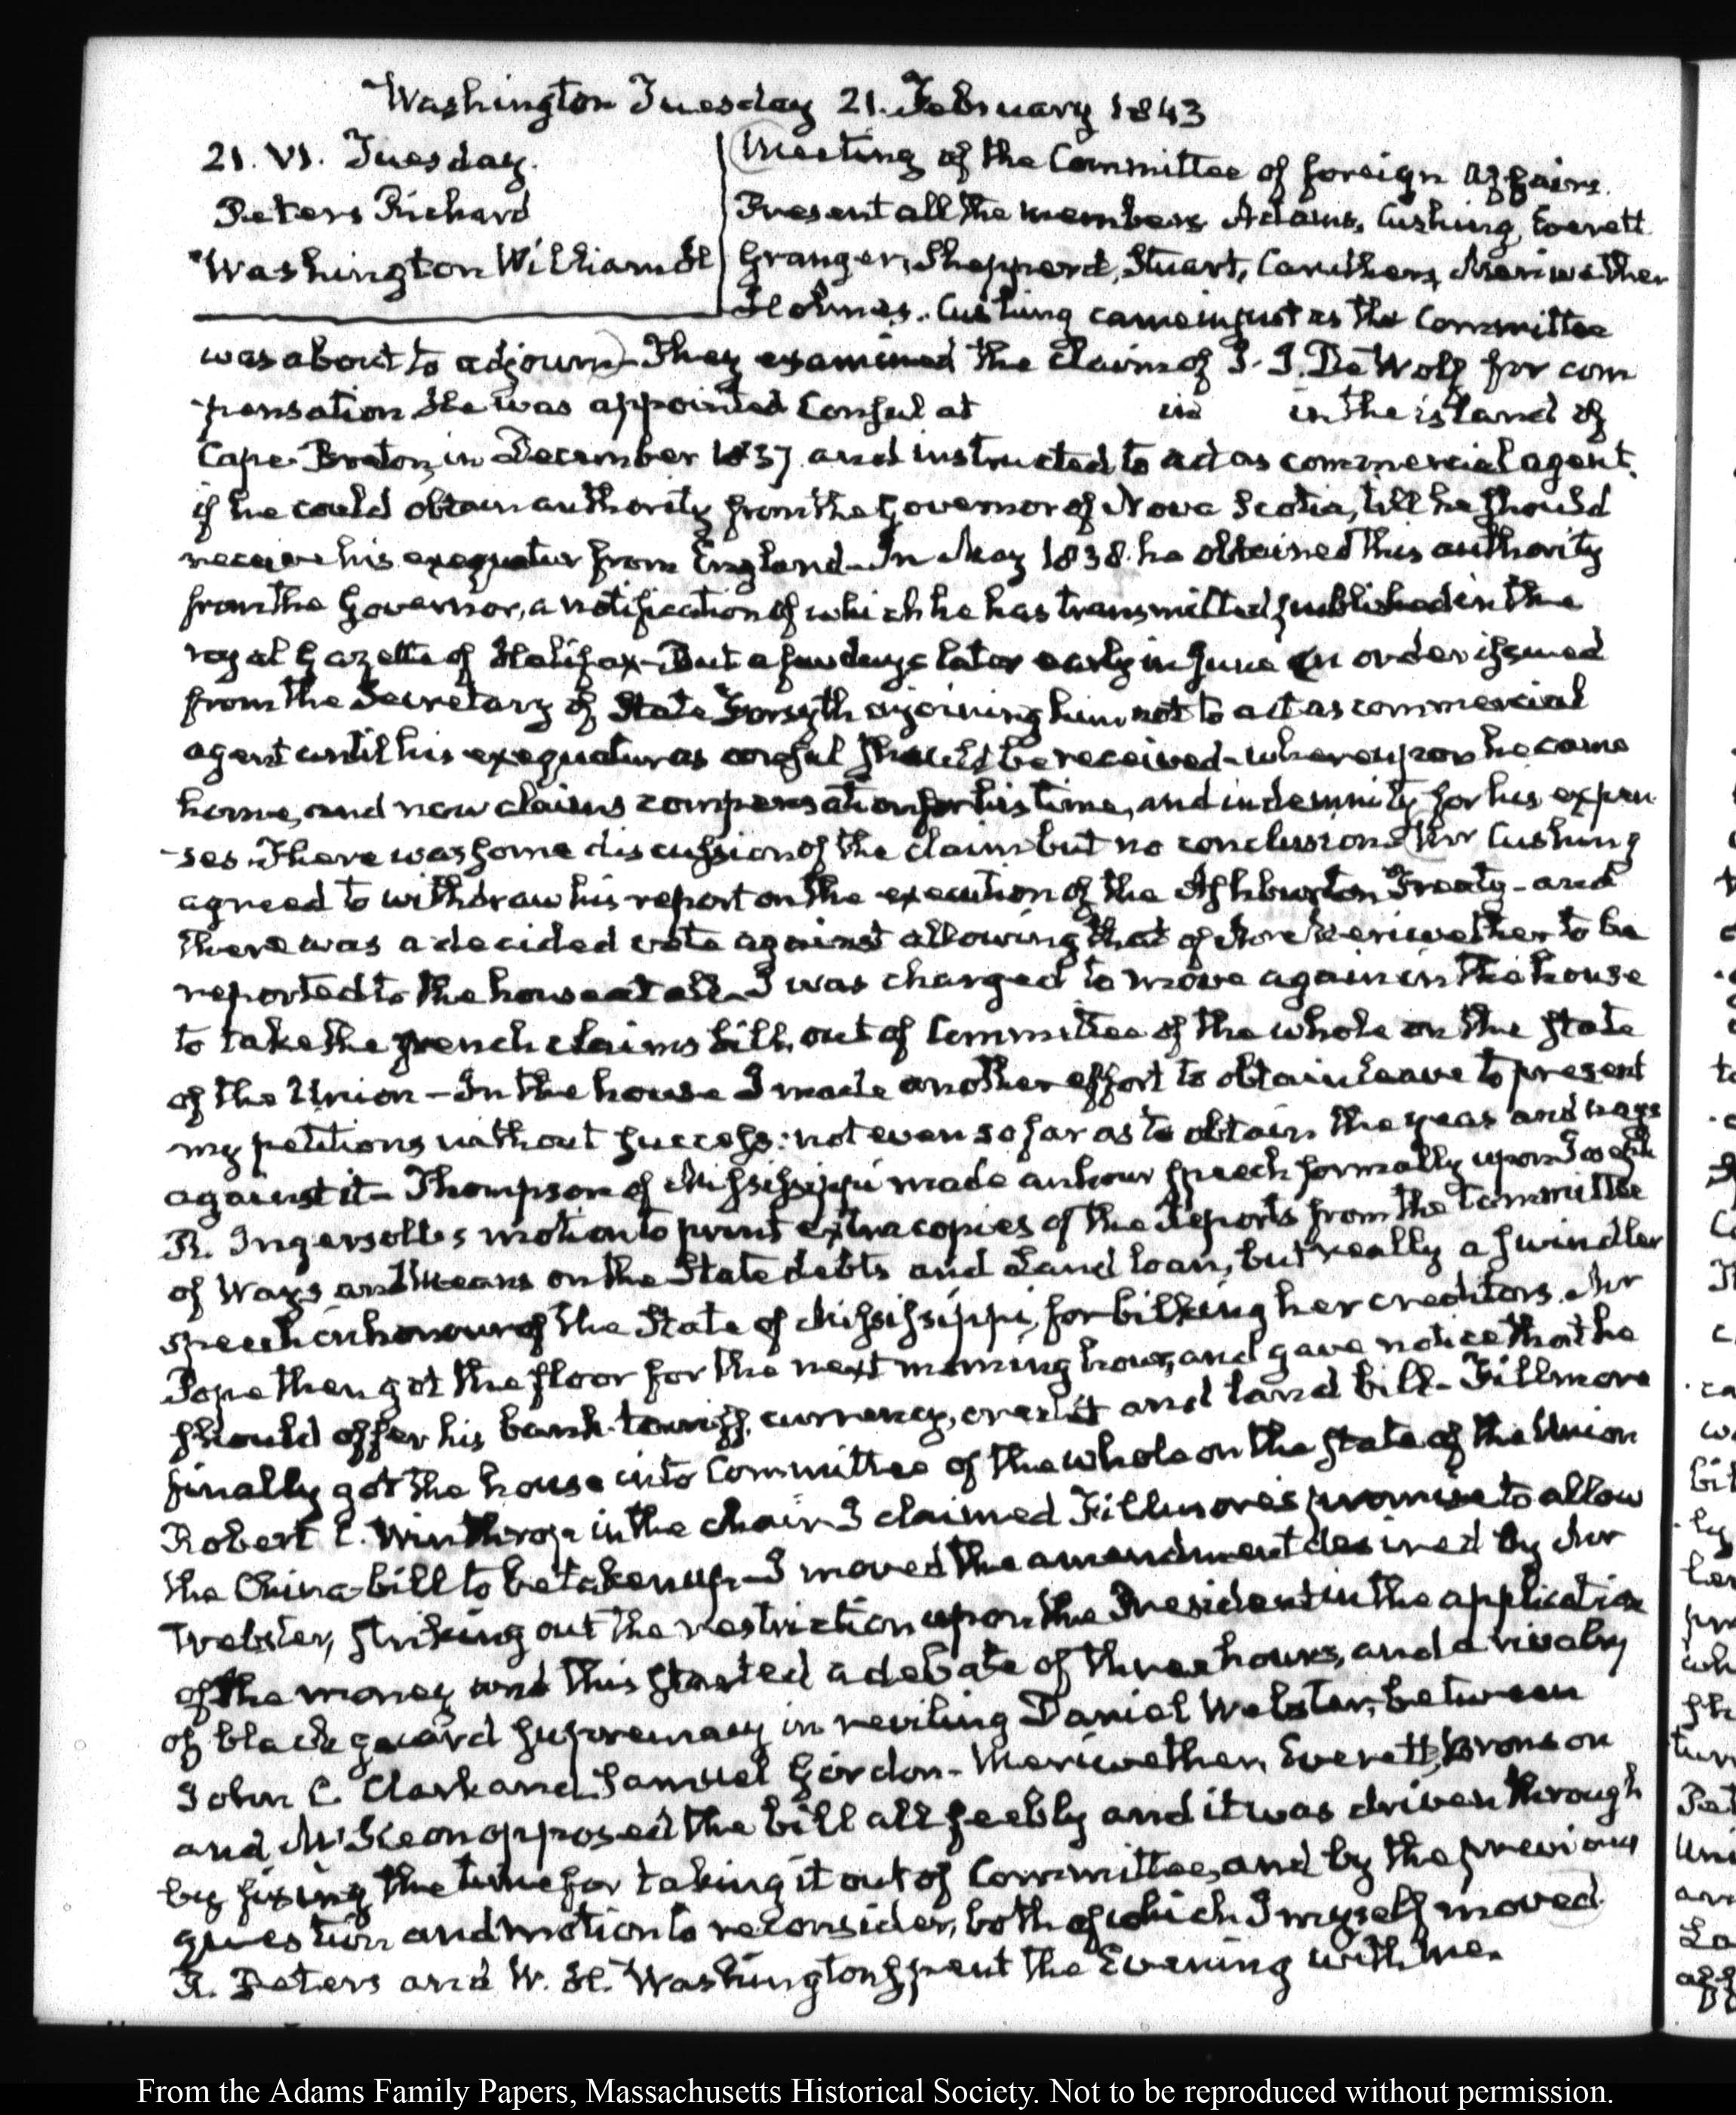 Washington Tuesday 21. February 1843
21. VI. Tuesday.
Peters Richard
Washington William H
Meeting of the Committee of foreign affairs.
Present all the members Adams, Cushing, Everett
Granger, Shepperd, Stuart, Caruthers, Meriwether
Holmes. Cushing came in just as the Committee
was about to adjourn - They examined the claim of J. J. De Wolf for com
-pensation He was appointed Consul at in in the island of
Cape-Breton, in December 1837 and instructed to act as commercial agent,
if he could obtain authority from the Governor of Nova Scotia, till he should
receive his exequatur from England - In May 1838 he obtained this authority
from the Governor, a notification of which he has transmitted published in the
royal Gazette of Halifax - But a few days later early in June an order issued
from the Secretary of State Forsyth enjoining him not to act as commercial
agent until his exequatur as consul should be received - whereupon he came
home, and now claims compensation for his time, and indemnity for his expen
-ses. There was some discussion of the claim but no conclusion Mr Cushing
agreed to withdraw his report on the execution of the Ashburton Treaty - and
there was a decided vote against allowing that of Meriwether to be
reported to the house at all. I was charged to move again in the house
to take the french claims bill, out of Committee of the whole on the state
of the Union - In the house I made another effort to obtain leave to present
my petitions without success: not even so far as to obtain the yeas and nays
against it - Thompson of Mississippi made an hour speech formally upon Joseph
R. Ingersoll's motion to print extra copies of the Reports from the Committee
of Ways and Means on the State debts and Land loan, but really a swindler
speech in honour of the State of Mississippi, for bilking her creditors. Mr
Pope then got the floor for the next morning hour, and gave notice that he
should offer his bank-tariff, currency, credit and land bill - Fillmore
finally got the house into Committee of the whole on the state of the Union
Robert C. Winthrop in the chair I claimed Fillmore's promise to allow
the China-bill to be taken up - I moved the amendment desired by Mr
Webster, striking out the restriction upon the President in the application
of the money and this started a debate of three hours, and a rivalry
of blackguard supremacy in reviling Daniel Webster, between
John C. Clark and Samuel Gordon - Meriwether, Everett, Bronson
and McKeon opposed the bill all feebly and it was driven through
by fixing the time for taking it out of Committee, and by the previous
question and motion to reconsider, both of which I myself moved.
R. Peters and W. H. Washington spent the Evening with me.
From the Adams Family Papers, Massachusetts Historical Society. Not to be reproduced without permission.